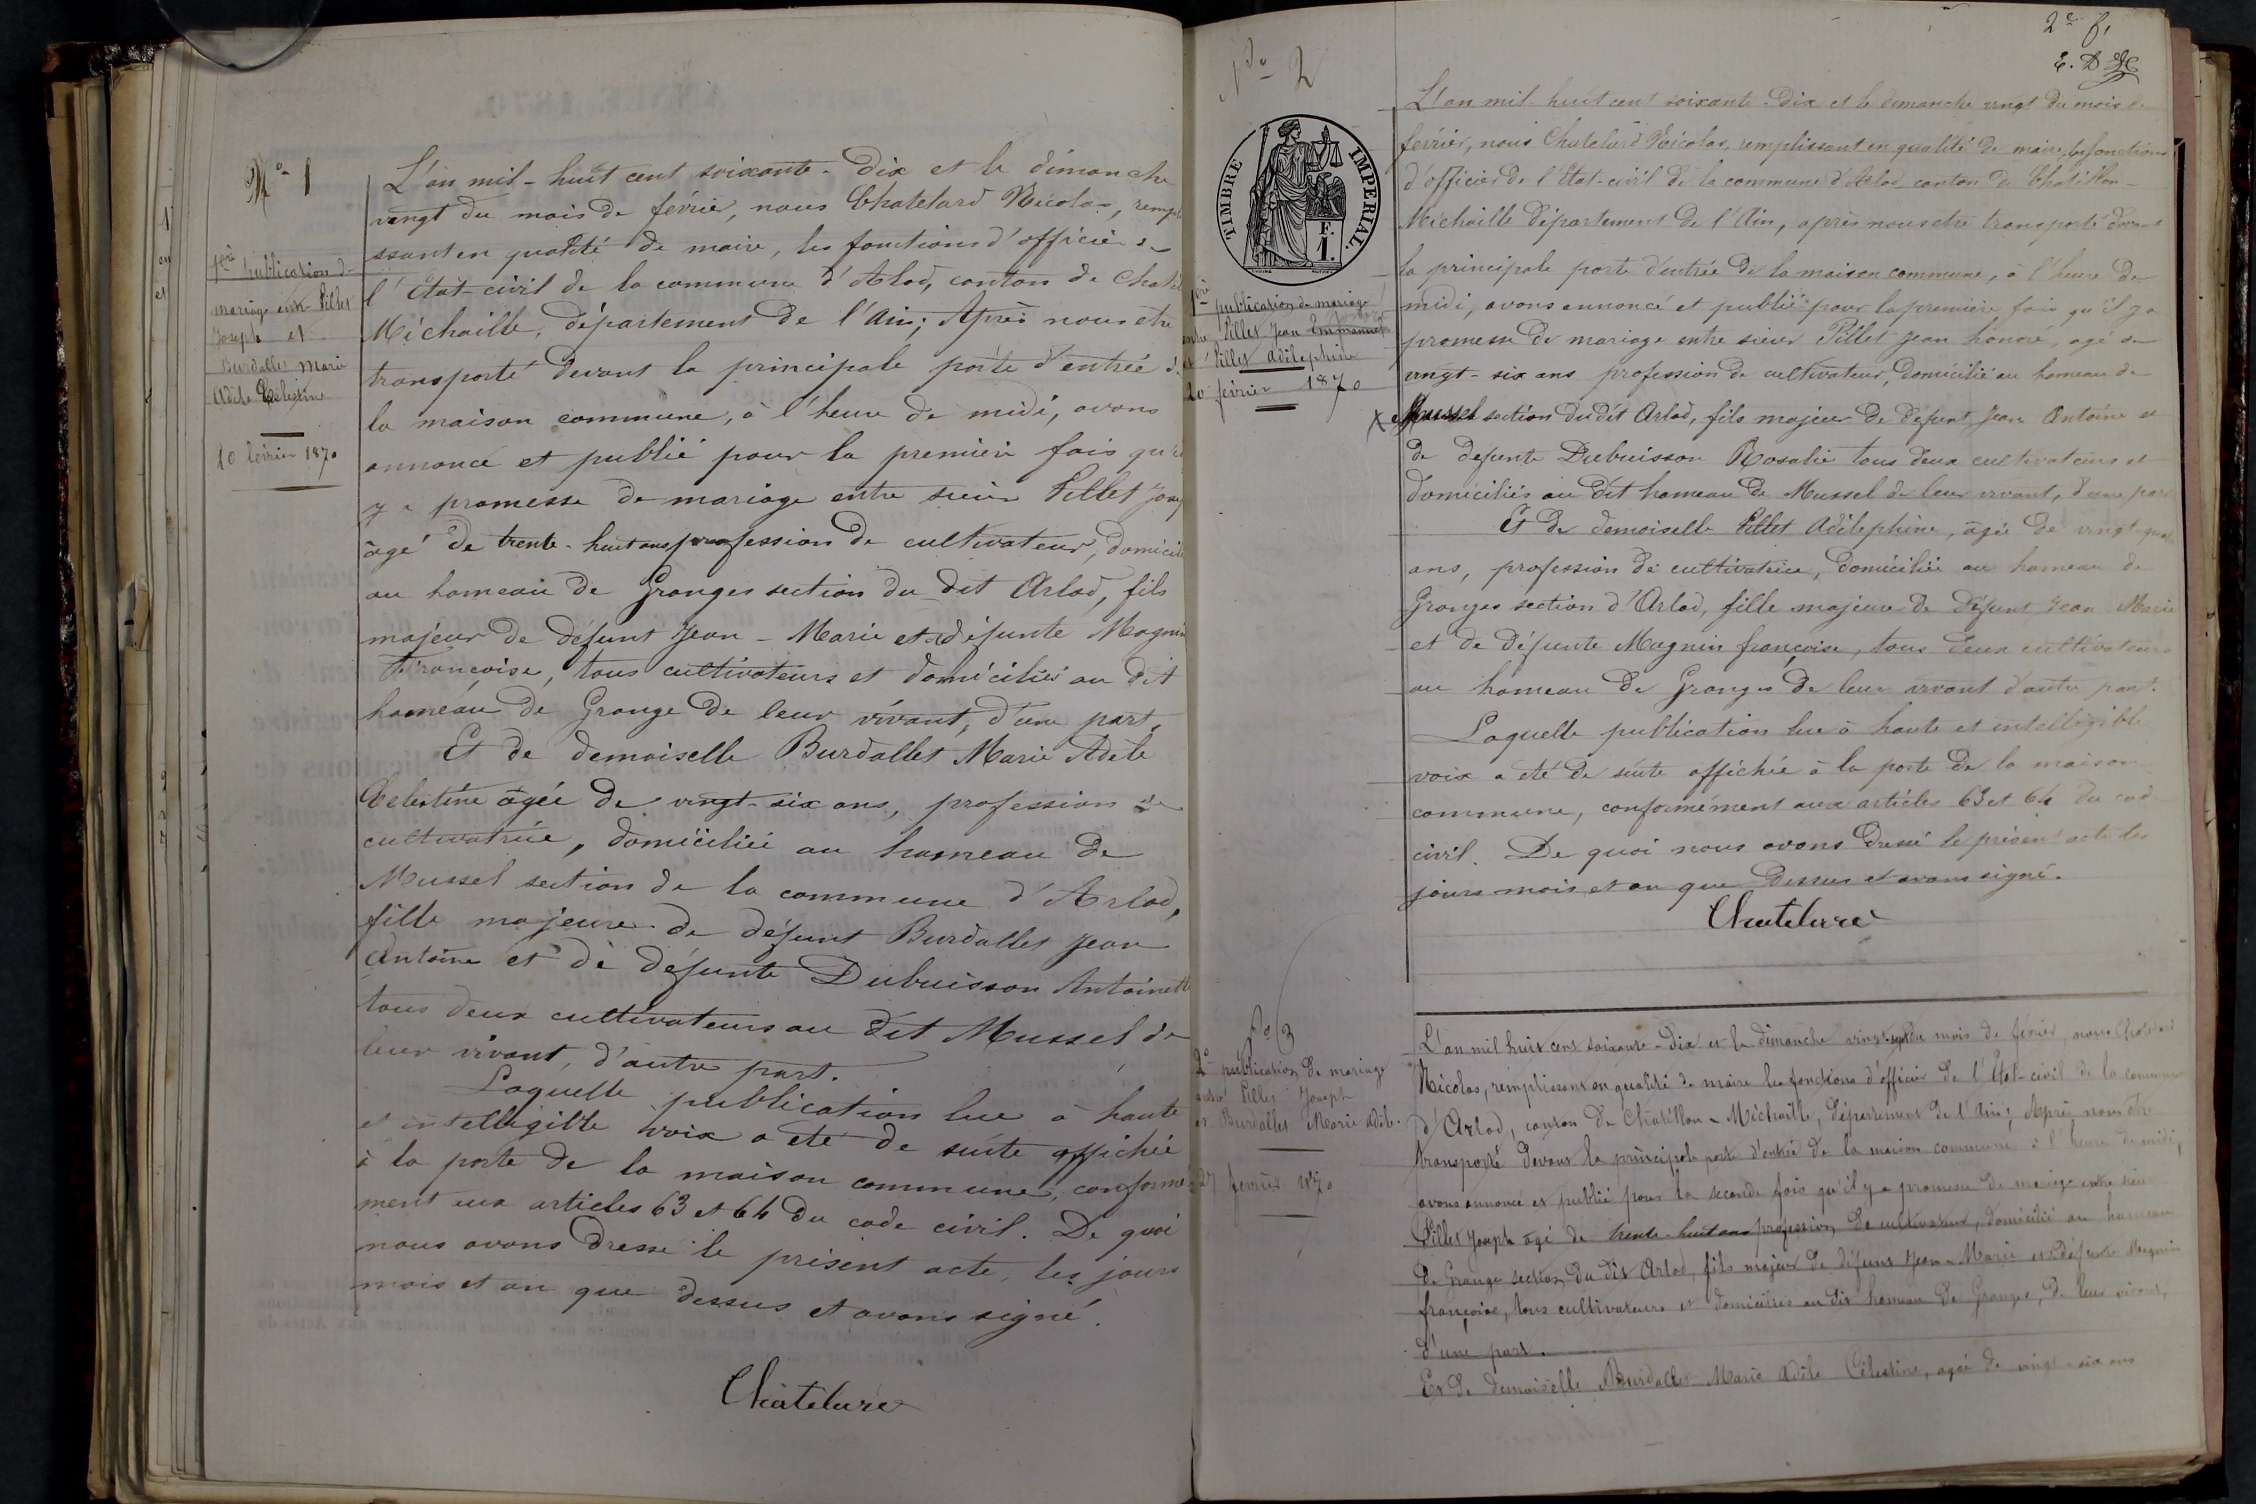 N° 1
1ère publication de
mariage entre Pillet
Joseph et
Burdallet Marie
Adèle Célestine
20 février 1870
L'an mil-huit cent soixante-Dix et le dimanche
vingt du mois de février, nous Chatelard Nicolas, rempli
ssant en qualité de maire, les fonctions d'officier de
l'Etat-civil de la commune d'Arlod, canton de Chatil
Michaille, département de l'Ain; Après nous etre
transporté devant la principale porte d'entrée de
la maison commune, à l'heure de midi, avons
annoncé et publié pour la première fois qu'il
y a promesse de mariage entre sieur Pillet Josep
âgé de trente-huit ans profession de cultivateur, domicilié
au hameau de Granges section du dit Arlod, fils
majeur de défunt Jean-Marie et défunte Magnin
Françoise, tous cultivateurs et domiciliés au dit
hameau de Grange de leur vivant, d'une part,
Et de demoiselle Burdallet Marie Adèle
Célestine âgée de vingt-six ans, profession de
cultivatrice, domiciliée au hameau de
Mussel section de la commune d'Arlod,
fille majeure de défunt Burdallet Jean
Antoine et de défunte Dubuisson Antoinette
tous deux cultivateurs au dit Mussel de
leur vivant, d'autre part.
Laquelle publication lue à haute
et intelligible voix a été de suite affichée
à la porte de la maison commune, conformé
ment aux articles 63 et 64 du code civil. De quoi
nous avons dressé le présent acte, les jours
mois et an que dessus et avons signé.
Chatelard
2e f.
N° 2
TIMBRE IMPERIAL.
F.
1.
1ère publication de mariage
entre Pillet Jean Emmanuel
et Pillet Adèlephine
20 février 1870
L'an mil-huit cent soixante-Dix et le dimanche vingt du mois de
février, nous Chatelard Nicolas, remplissant en qualité de maire, les fonctions
d'officier de l'Etat-civil de la commune d'Arlod canton de Chatillon-
Michaille département de l'Ain, après nous etre transporté devant
la principale porte d'entrée de la maison commune, à l'heure de
midi, avons annoncé et publié pour la première fois qu'il y a
promesse de mariage entre sieur Pillet Jean honoré, agé de
vingt-six ans profession de cultivateur, domicilié au hameau de
Mussel section du dit Arlod, fils majeur de défunt Jean Antoine et
de défunte Dubuisson Rosalie tous deux cultivateurs et
domiciliés au dit hameau de Mussel de leur vivant, d'une part
Et de demoiselle Pillet Adèlephine, agée de vingt-quatre
ans, profession de cultivatrice, domiciliée au hameau de
Granges section d'Arlod, fille majeure de défunt Jean Marie
et de défunte Magnin françoise, tous deux cultivateurs
au hameau de Granges de leur vivant d'autre part.
Laquelle publication lue à haute et intelligible
voix a été de suite affichée à la porte de la maison
commune, conformément aux articles 63 et 64 du cod
civil. De quoi nous avons dressé le présent acte les
jours mois et an que dessus et avons signé.
Chatelard
N° 3
2e publication de mariage
entre Pillet Joseph
et Burdallet Marie Adèle.
27 février 1870
L'an mil huit cent soixante-Dix et le dimanche vingt-sept du mois de février, nous Chatelard
Nicolas, remplissant en qualité de maire les fonctions d'officier de l'Etat-civil de la commune
d'Arlod, canton de Chatillon-Michaille, département de l'Ain; Après nous etre
transporté devant la principale porte d'entrée de la maison commune à l'heure de midi,
avons annoncé et publié pour la seconde fois qu'il y a promesse de mariage entre sieur
Pillet Joseph agé de trente-huit ans profession de cultivateur, domicilié au hameau
de Grange section du dit Arlod, fils majeur de défunt Jean-Marie et défunte Magnin
françoise, tous cultivateurs et domiciliés au dit hameau de Granges, de leur vivant,
d'une part.
Et de demoiselle Burdallet Marie Adèle Célestine, agée de vingt-six ans